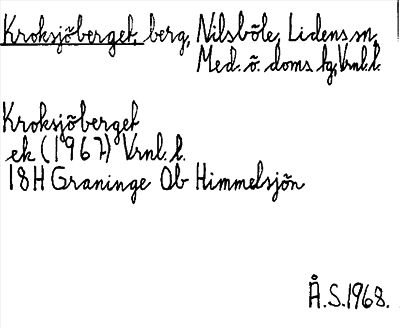 Kroksjöberget, berg, Nilsböle, Lidens sn,
Med. ö. doms lg, Vrnl. l.
Kroksjöberget
ek (1967) Vrnl. l.
18H Graninge Ob Himmelsjön
Å.S. 1968.